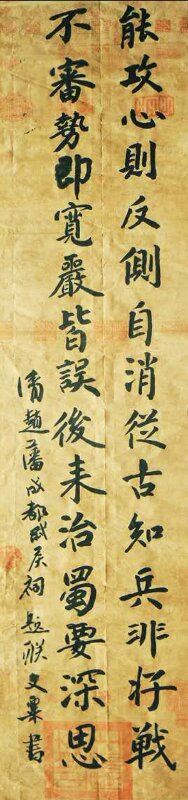 能攻心則反側自消從古知兵非好戰
不審勢即寬嚴皆誤後來治蜀要深思
清趙藩成都武侯祠題聯文粟書